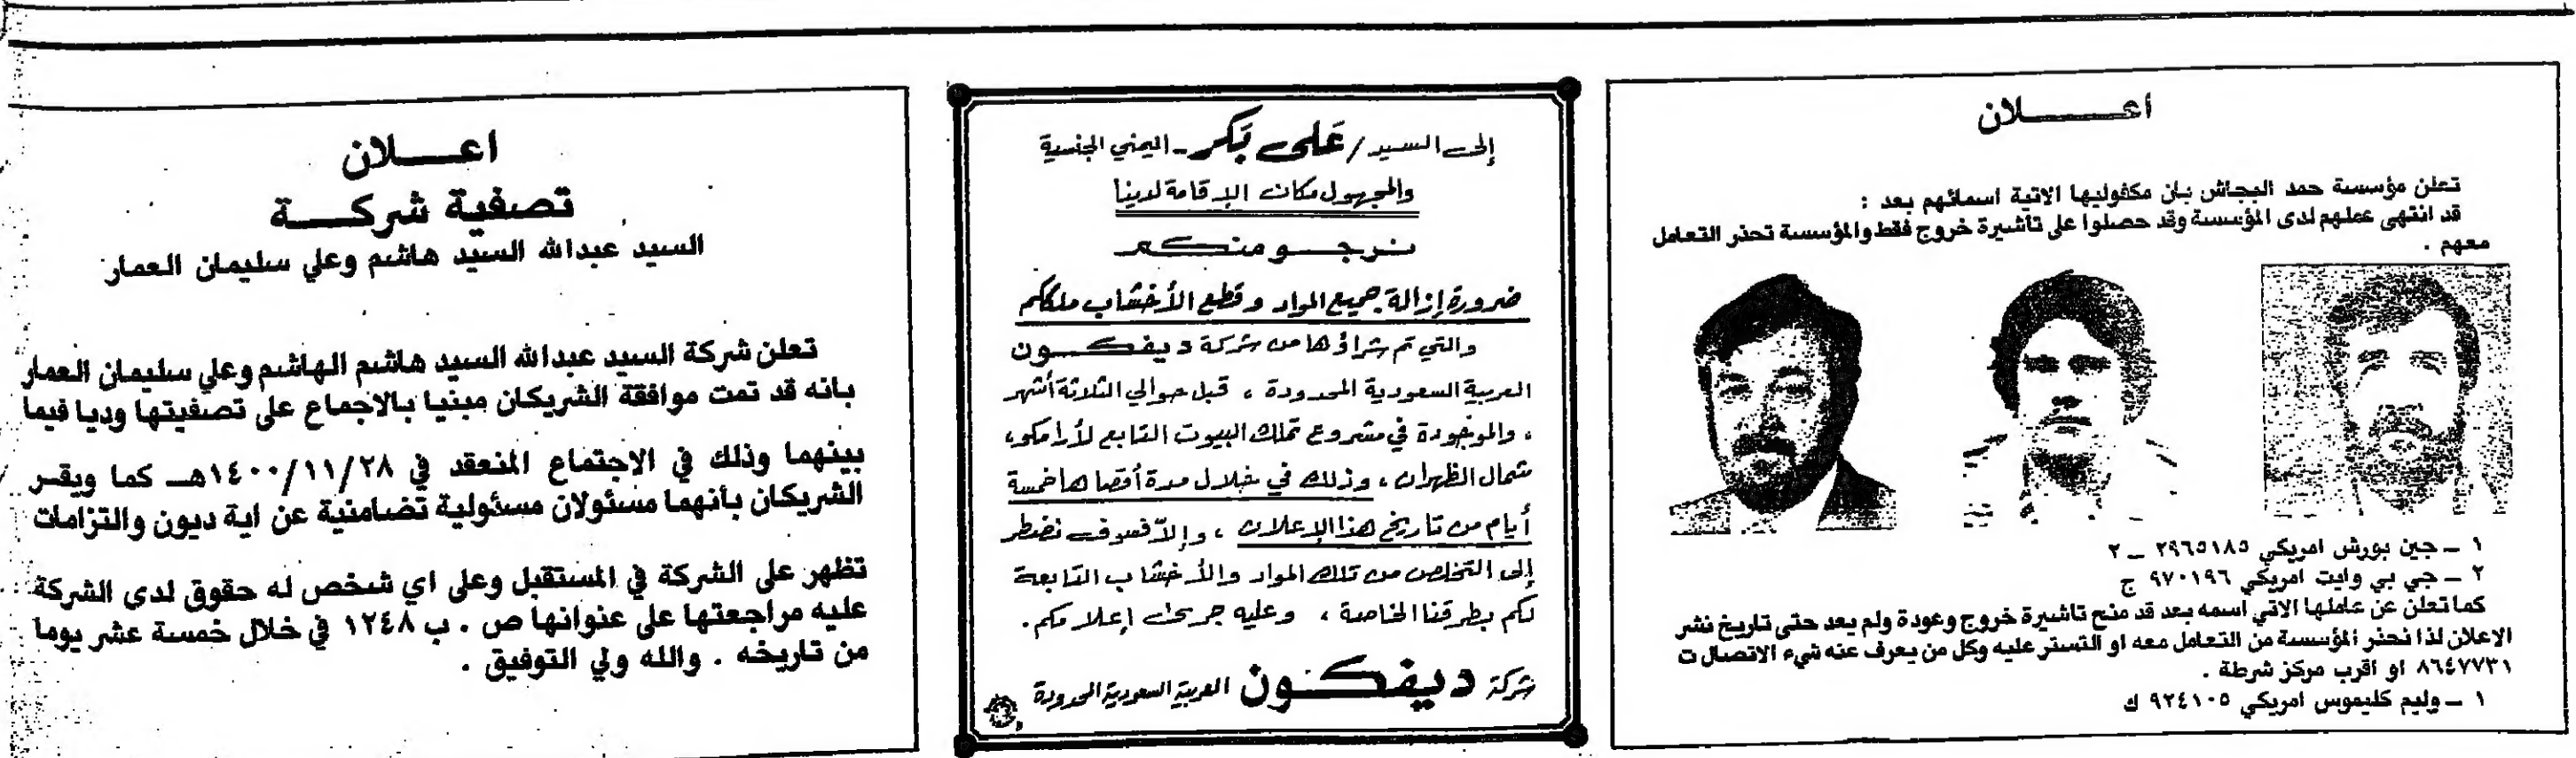 اعـــــلان
تعلن مؤسسة حمد البجاش بان مكفوليها الاتية اسمائهم بعد :
قد انتهى عملهم لدى المؤسسة وقد حصلوا على تأشيرة خروج فقط والمؤسسة تحذر التعامل
معهم .
١ ــ جين بورش امريكي ٢٩٦٥١٨٥ ــ ٢
٢ ــ جي بي وايت امريكي ٩٧٠١٩٦ ج
كما تعلن عن عاملها الاتي اسمه بعد قد منح تاشيرة خروج وعودة ولم يعد حتى تاريخ نشر
الاعلان لذا نحذر المؤسسة من التعامل معه او التستر عليه وكل من يعرف عنه شيء الاتصال ت
٨٦٤٧٧٣١ او اقرب مركز شرطة .
١ ــ وليم كليموس امريكي ٩٢٤١٠٥ ك
إلى السيد / عَلى بَكر - اليمني الجنسية
والمجهول مكان الإقامة لدينا
نرجـــو منكــم
ضرورة إزالة جميع المواد وقطع الأخشاب ملككم
والتي تم شراؤها من شركة ديفكــــون
العربية السعودية المحدودة ، قبل حوالي الثلاثة أشهر
، والموجودة في مشروع تملك البيوت التابع لأرامكو ،
شمال الظهران ، وذلك في خلال مدة أقصاها خمسة
أيام من تاريخ هذا الإعلان ، وإلاّ فسوف نضطر
إلى التخلص من تلك المواد والأخشاب التابعة
لكم بطرقنا الخاصة ، وعليه جرى إعلامكم .
شركة ديفكـــون العربية السعودية المحدودة
اعـــــلان
تصفية شركـــة
السيد عبدالله السيد هاشم وعلي سليمان العمار
تعلن شركة السيد عبدالله السيد هاشم الهاشم وعلي سليمان العمار
بانه قد تمت موافقة الشريكان مبنيا بالاجماع على تصفيتها وديا فيما
بينهما وذلك في الاجتماع المنعقد في ١٤٠٠/١١/٢٨هـ كما ويقر
الشريكان بأنهما مسئولان مسئولية تضامنية عن اية ديون والتزامات
تظهر على الشركة في المستقبل وعلى اي شخص له حقوق لدى الشركة
عليه مراجعتها على عنوانها ص . ب ١٢٤٨ في خلال خمسة عشر يوما
من تاريخه . والله ولي التوفيق .